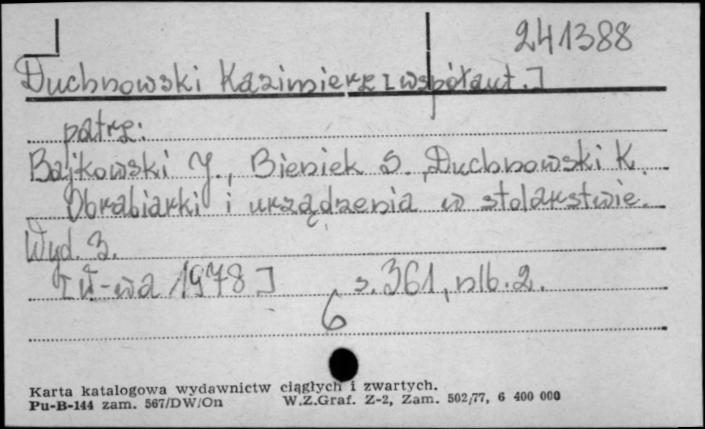 241388
Duchnowski Kazimierz [współaut.]
patrz:
Bajkowski J., Bieniek S., Duchnowski K.
Obrabiarki i urządzenia w stolarstwie.
Wyd. 3.
[W-wa 1978] s. 361, nlb. 2.
6
Karta katalogowa wydawnictw ciągłych i zwartych.
Pu-B-144 zam. 567/DW/On W.Z.Graf. Z-2, Zam. 502/77, 6 400 000